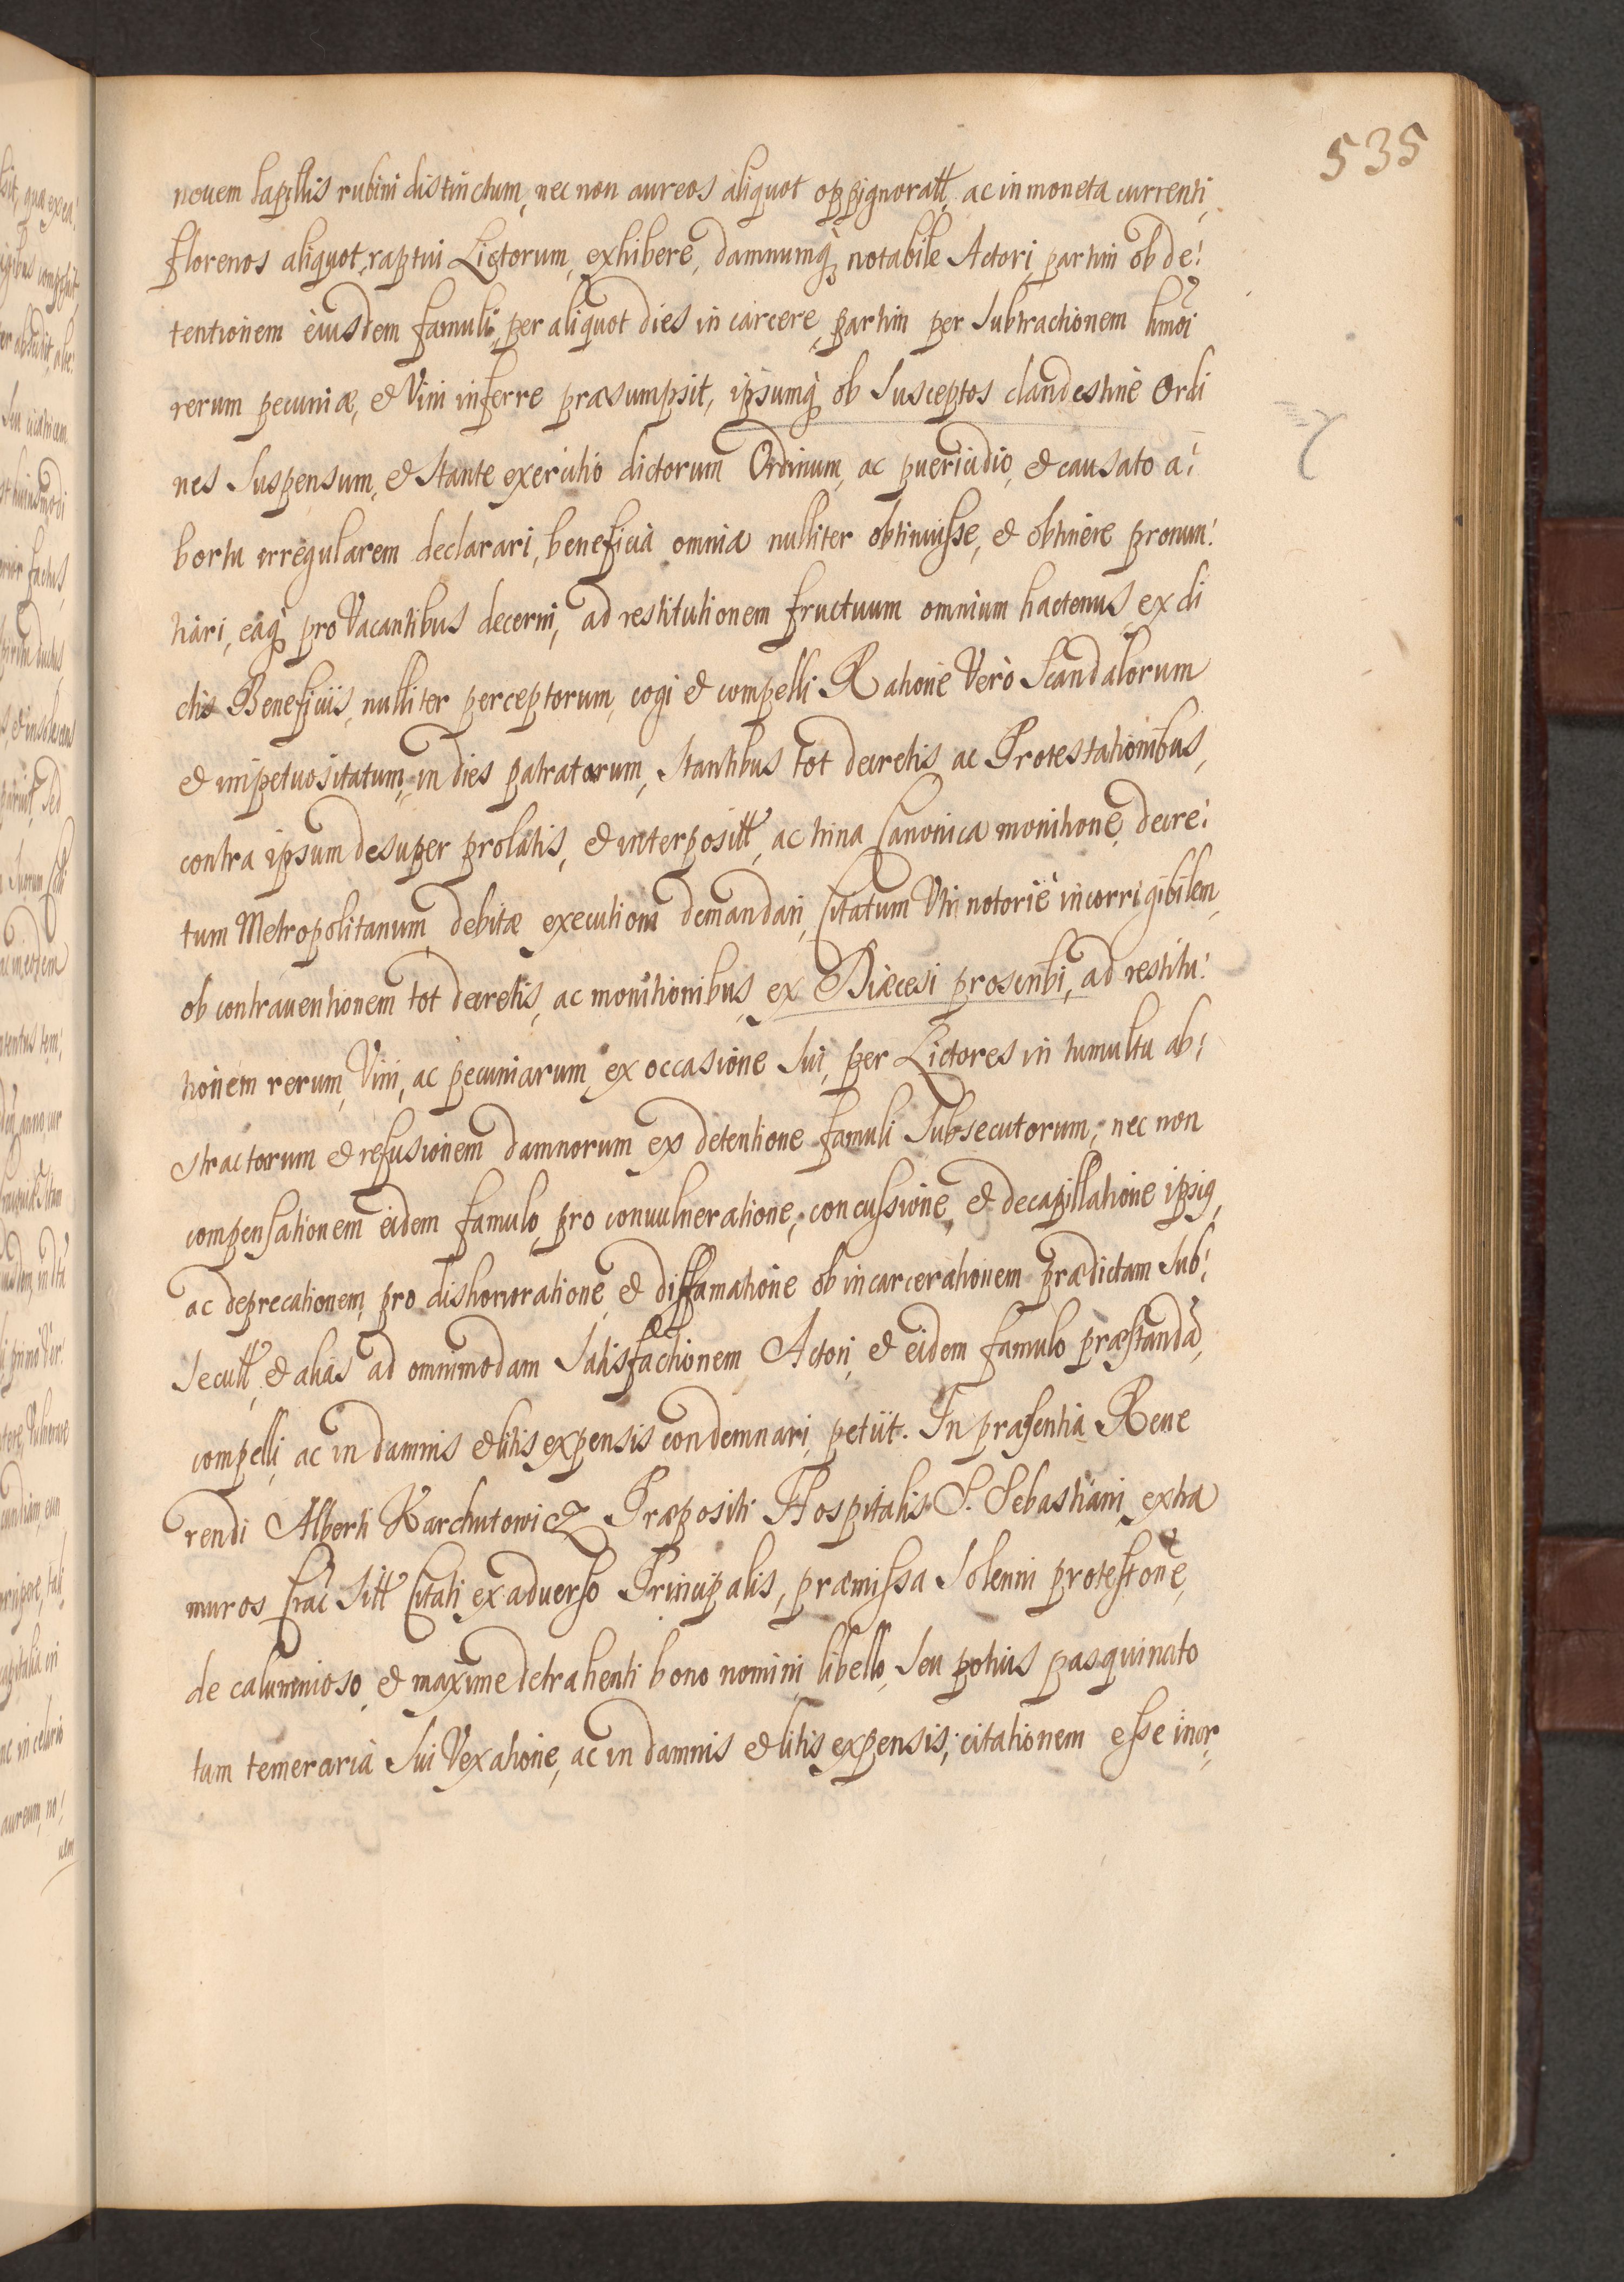 535
nouem lapillis rubini distinctum, nec non aureos aliquot oppignoratt, ac in moneta currenti,
florenos aliquot, raptui Lictorum, exhibere, damnumq notabile Actori, partim ob de:
tentionem eiusdem famuli, per aliquot dies in carcere, partim per subtractionem hmoi
rerum pecuniæ, et Vini inferre præsumpsit, ipsumq ob susceptos clandestinè Ordi
nes suspensum, et stante exercitio dictorum Ordinum, ac puericidio, et causato a:
bortu irregularem declarari, beneficia omnia nulliter obtinuisse, et obtinere pronun:
tiari, eaq pro Vacantibus decerni, ad restitutionem fructuum omnium hactenus ex di
ctis Beneficiis, nulliter perceptorum, cogi et compelli Ratione Verò Scandalorum
et impetuositatum, in dies patratorum, stantibus tot decretis ac Protestationibus,
contra ipsum desuper prolatis, et interpositt, ac trina Canonica monitione, decre:
tum Metropolitanum debitæ executioni demandari, Citatum Vti notoriè incorrigibilem,
ob contrauentionem tot decretis, ac monitionibus, ex Diæcesi proscribi, ad restitu:
tionem rerum, Vini, ac pecuniarum, ex occasione sui, per Lictores in tumultu ab:
stractorum et refusionem damnorum ex detentione famuli subsecutorum, nec non
compensationem eidem famulo, pro conuulneratione, concussione, et decapillatione ipsig,
ac deprecationem, pro dishonoratione, et diffamatione ob incarcerationem prædictam sub:
secutt, et alias ad omnimodam satisfactionem Actori, et eidem famulo præstandã,
compelli, ac in damnis et litis expensis condemnari, petiit. In præsentia Reue
rendi Alberti Karchutowicz Præpositi Hospitalis S. Sebastiani extra
muros Crac sitt Citati ex aduerso Principalis, præmissa solenni protestone,
de calumnioso, et maximè detrahenti bono nomini, libello, seu potius pasquinato
tam temeraria sui Vexatione, ac in damnis et litis expensis, citationem esse inor: